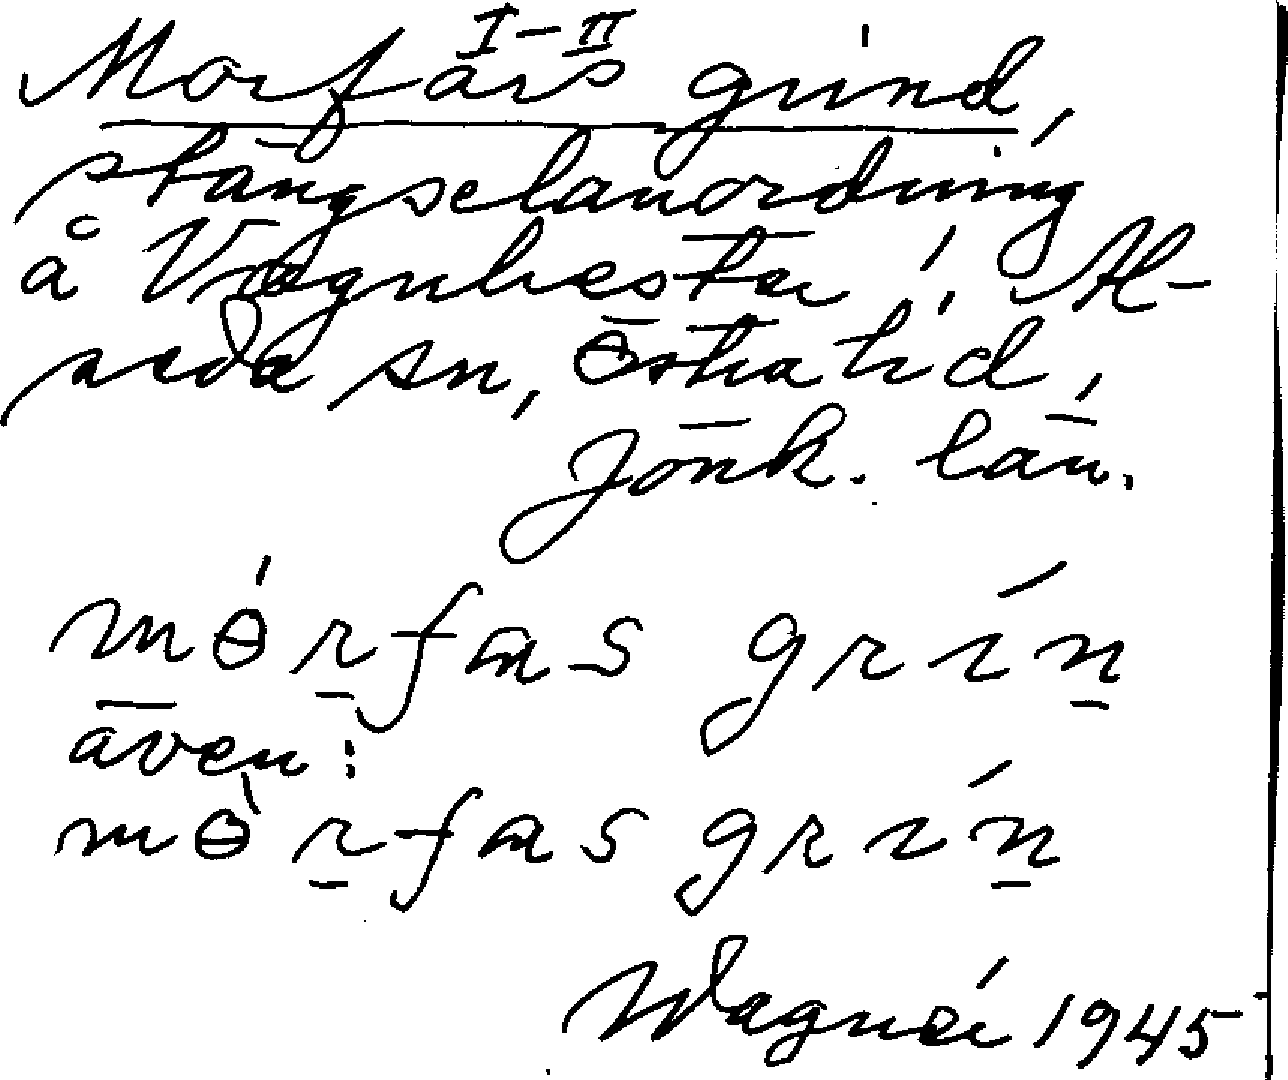 I–II
Morfars grind,
stängselanordning
å Vrågulvester, Al-
seda sn, Östra hd,
Jönk. län.
mɵ́r̠fas grín̠
även:
mɵ̀r̠fas grín̠
Wagnér 1945